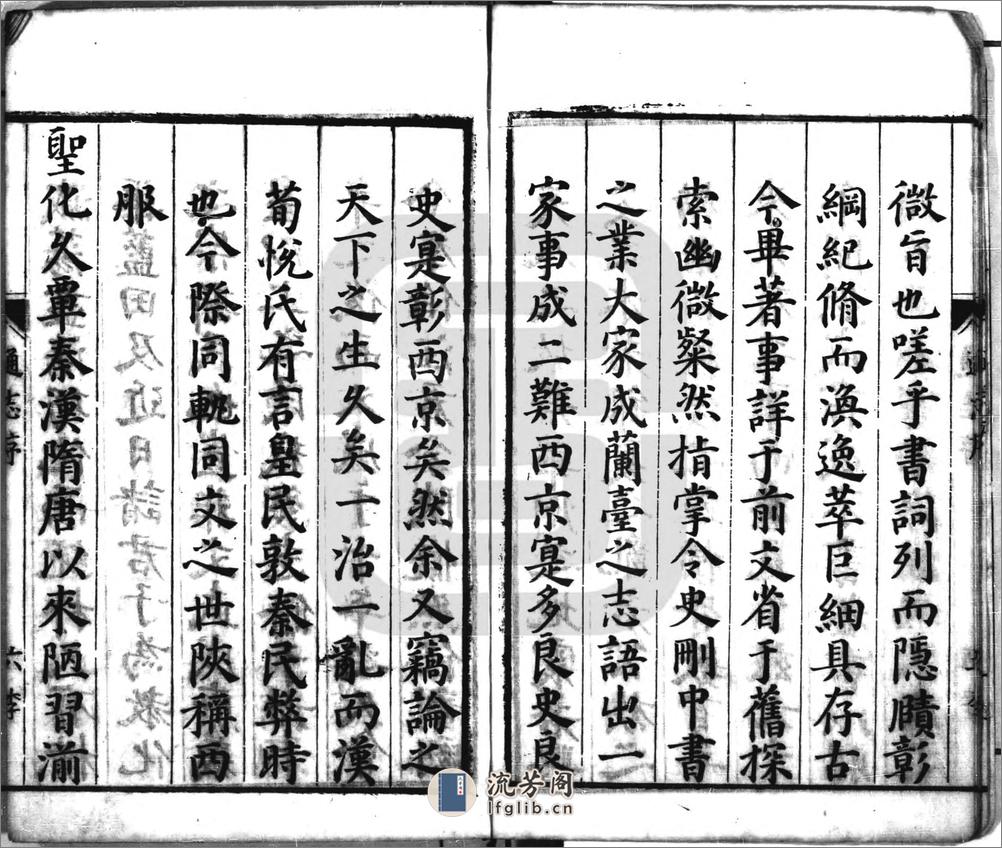 微旨也嗟乎書詞列而隱賾彰
綱紀脩而渙逸萃巨細具存古
今畢著事詳于前文省于舊探
索幽微粲然指掌令史刪中書
之業大家成蘭臺之志語出一
家事成二難西京寔多良史良
史寔彰西京矣然余又竊論之
天下之生久矣一治一亂而漢
荀悅氏有言皇民敦秦民弊時
也今際同軌同文之世陜稱西
服
聖化久覃秦漢隋唐以來陋習湔
通志序
六
流芳阁
lfglib.cn